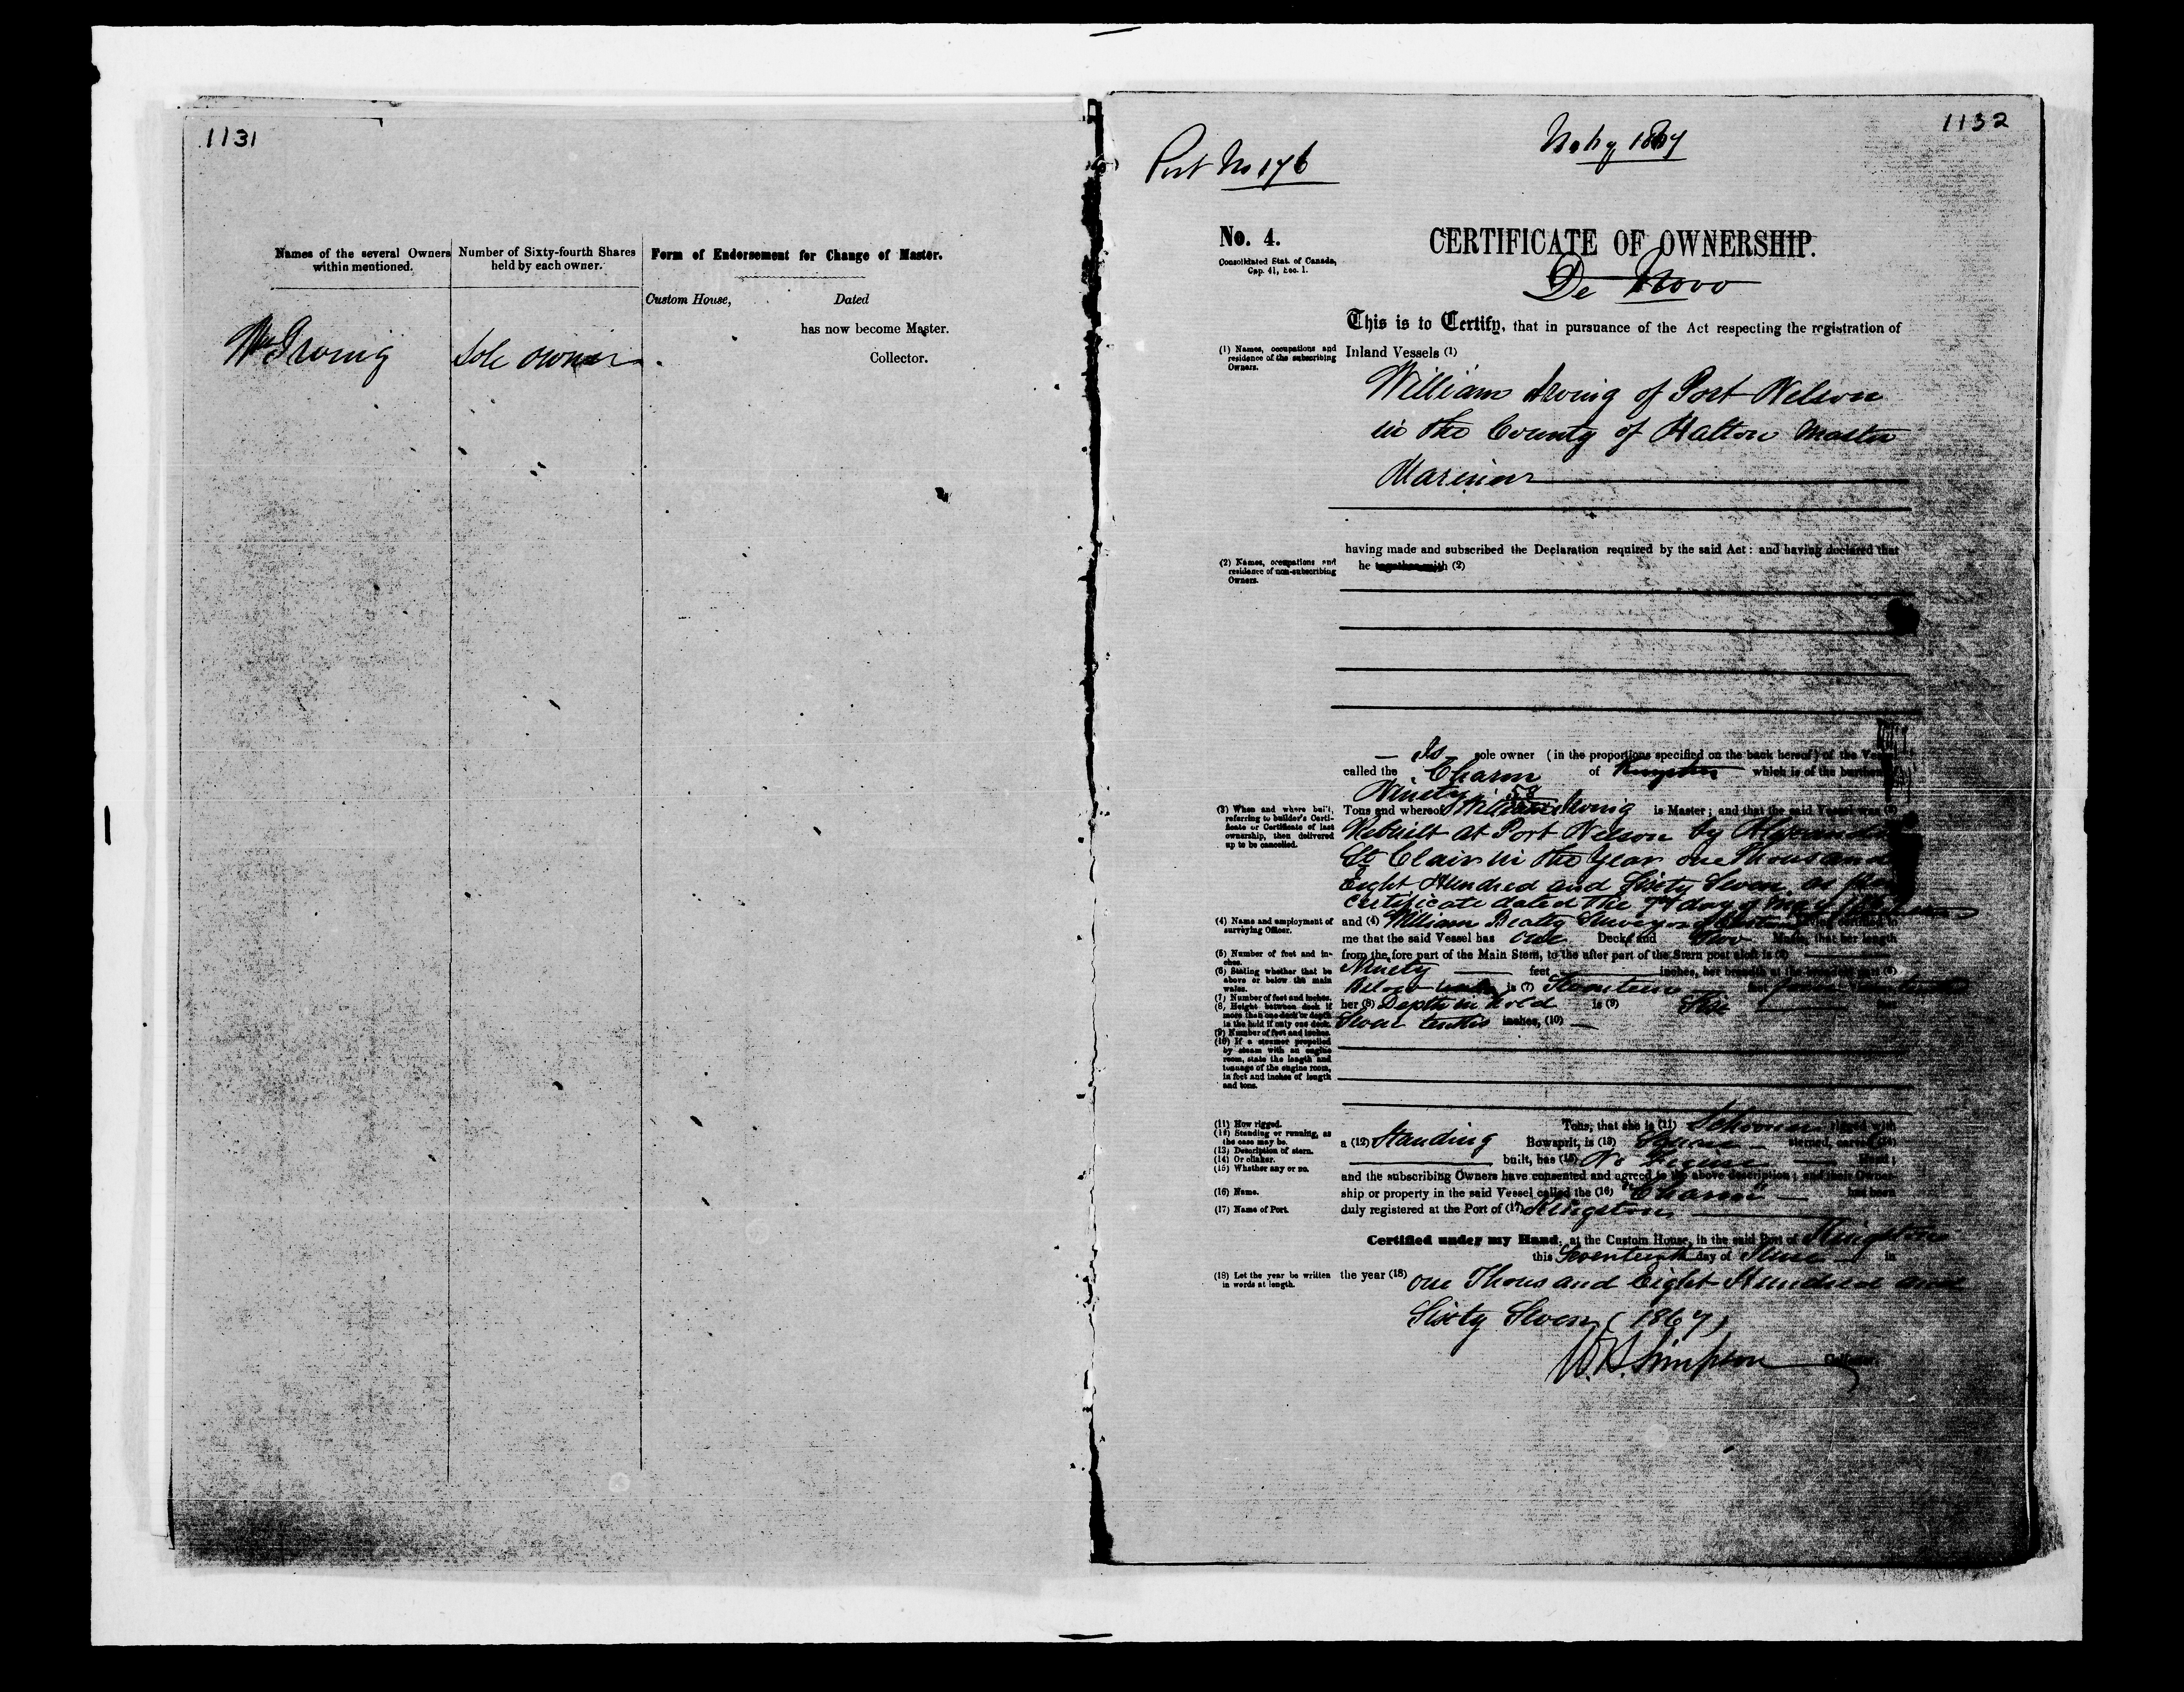 1131
Names of the several Owners within mentioned.
Number of Sixty-fourth Shares held by each owner.
Form of Endorsement for Change of Master.
Custom House, Dated
has now become Master.
Collector.
Wm Irving sole owner
1132
Port No 176
1867
No. 4.
Consolidated Stat. of Canada,
Cap. 41, Sec. 1.
CERTIFICATE OF OWNERSHIP.
De Novo
This is to Certify, that in pursuance of the Act respecting the registration of
(1) Names, occupations and residence of the subscribing Owners.
Inland Vessels (1)
William Irving of Port Nelson
in the County of Halton Master
Mariner
having made and subscribed the Declaration required by the said Act: and having declared that
(2) Names, occupations and residence of non-subscribing Owners.
he together with (2)
Is sole owner (in the proportions specified on the back hereof) of the
called the Charm of Kingston which is of the burthen
Ninety 58
(3) When and where built, referring to builder's Certificate or Certificate of last ownership, then delivered up to be cancelled.
Tons and whereof William Irving is Master; and that the said Vessel was (3)
Rebuilt at Port Nelson by Alexander
St Clair in the Year one Thousand
Eight Hundred and Sixty Seven as per
Certificate dated the day of May
(4) Name and employment of surveying Officer.
and (4) William Beatty Surveyor
me that the said Vessel has one Decks and Two Masts, that her length
(5) Number of feet and inches.
from the fore part of the Main Stem, to the after part of the Stern post aloft is (5)
(6) Stating whether that be above or below the main wales.
Ninety feet inches, her breadth at the broadest part (6)
(7) Number of feet and inches.
Below is (7)
(8) Height between deck if more than one deck or depth in the hold if only one deck.
her (8) Depth in hold is (9)
(9) Number of feet and inches.
Seven tenths inches, (10)
(10) If a steamer propelled by steam with an engine room, state the length and tonnage of the engine room, in feet and inches of length and tons.
(11) How rigged.
Tons, that she is (11) Schooner rigged with
(12) Standing or running, as the case may be.
a (12) Standing Bowsprit, is (13) Square sterned, carvel (14)
(13) Description of stern.
(14) Or clinker.
(15) Whether any or no.
built, has (15) No Figure Head;
and the subscribing Owners have consented and agreed to the above description; and their Owner-
(16) Name.
ship or property in the said Vessel called the (16) "Charm" has been
(17) Name of Port.
duly registered at the Port of (17) Kingston
Certified under my Hand, at the Custom House, in the said Port of Kingston
this Seventeenth day of June in
(18) Let the year be written in words at length.
the year (18) one Thousand Eight Hundred and
Sixty Seven (1867)
W. H. Simpson Collector.